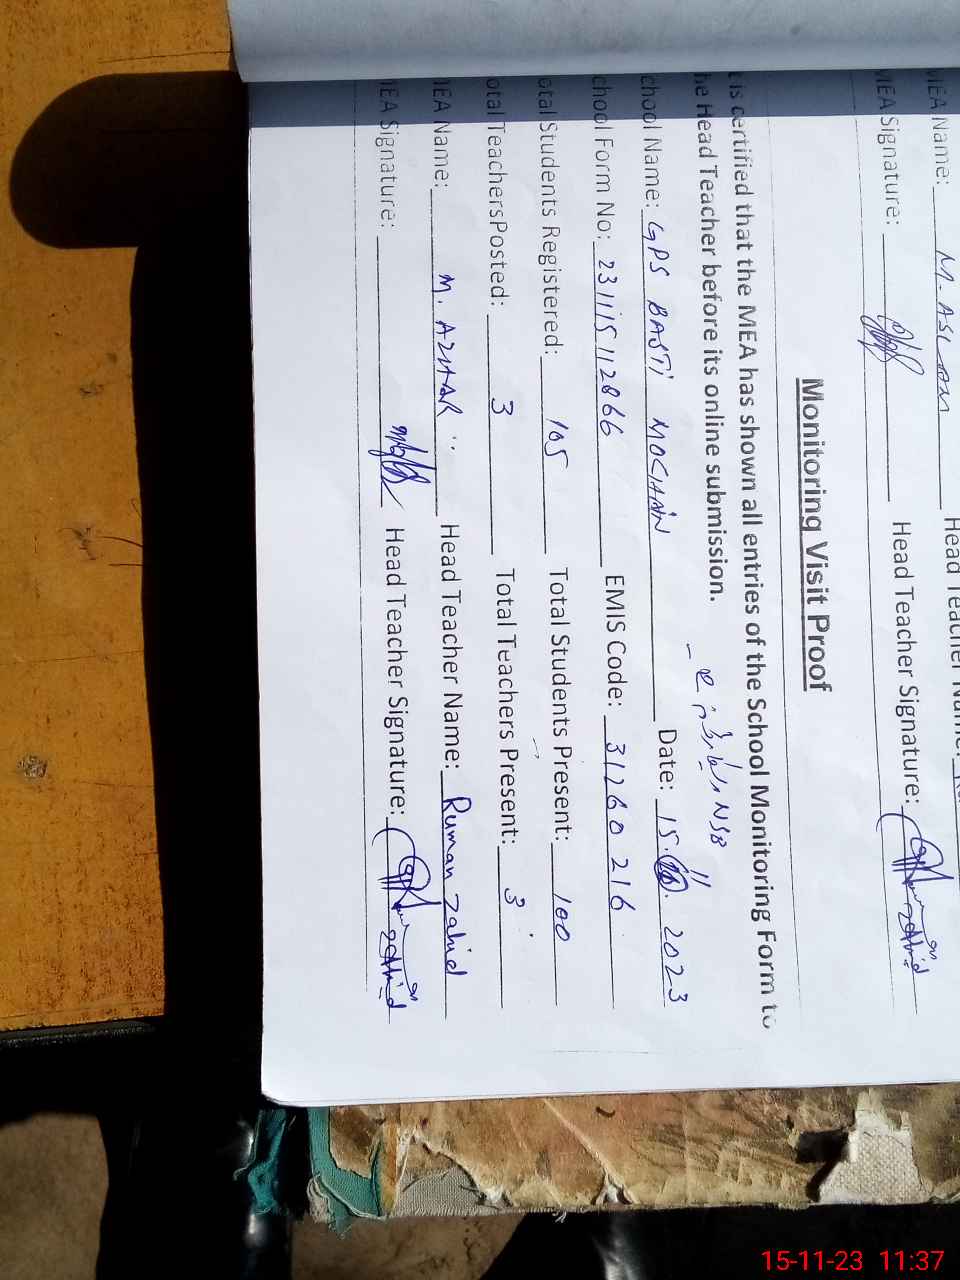 MEA Name: M. ASLAM Head Teacher Name:
MEA Signature: Head Teacher Signature: Zahid
Monitoring Visit Proof
t is certified that the MEA has shown all entries of the School Monitoring Form to
he Head Teacher before its online submission.
chool Name: GPS BASTI MOCHAIN Date: 15. 11. 2023
chool Form No: 231115112866 EMIS Code: 31260216
otal Students Registered: 105 Total Students Present: 100
otal TeachersPosted: 3 Total Teachers Present: 3
MEA Name: M. AZHAR Head Teacher Name: Ruman Zahid
MEA Signature: Head Teacher Signature: Zahid
15-11-23 11:37